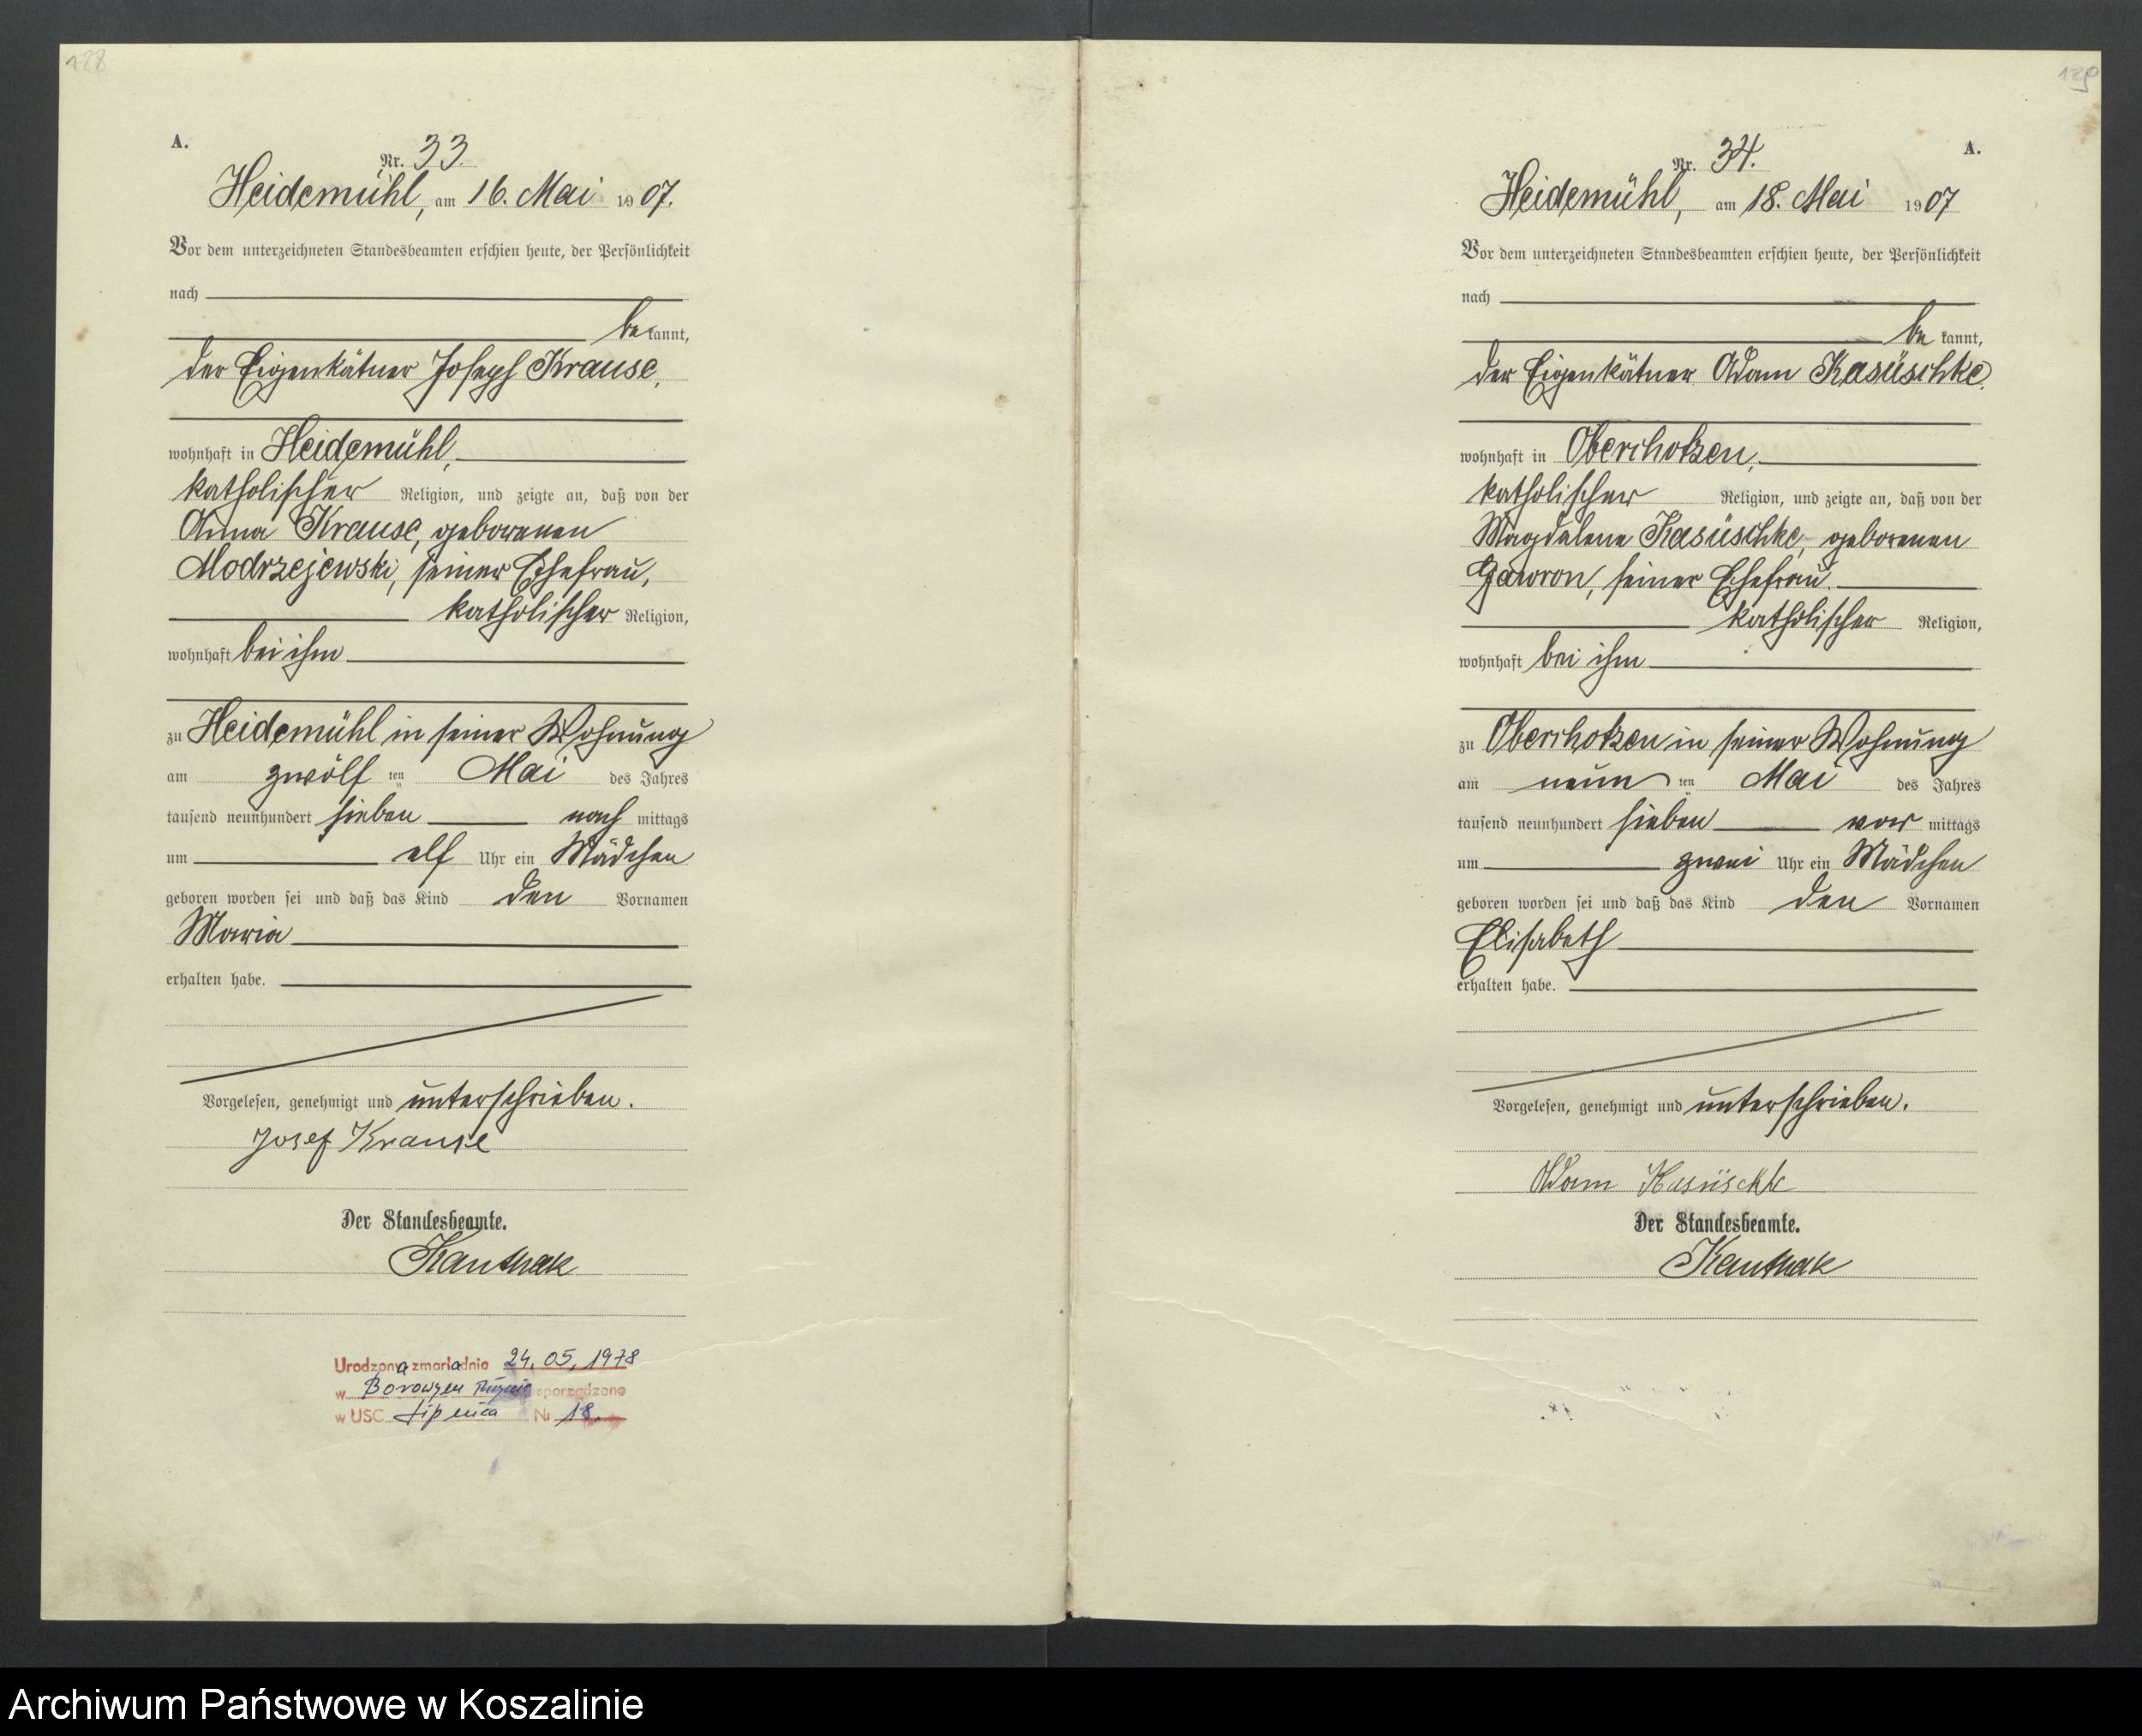 128
A.
Nr. 33.
Heidemühl, am 16. Mai 1907.
Vor dem unterzeichneten Standesbeamten erschien heute, der Persönlichkeit
nach
be kannt,
der Eigenkätner Joseph Krause,
wohnhaft in Heidemühl,
katholischer Religion, und zeigte an, daß von der
Anna Krause, geborenen
Modrzejewski, seiner Ehefrau,
katholischer Religion,
wohnhaft bei ihm
zu Heidemühl in seiner Wohnung
am zwölf ten Mai des Jahres
tausend neunhundert sieben nach mittags
um elf Uhr ein Mädchen
geboren worden sei und daß das Kind den Vornamen
Maria
erhalten habe.
Vorgelesen, genehmigt und unterschrieben.
Josef Krause
Der Standesbeamte.
Kanthak
Urodzona zmarła dnia 24.05.1978
w Borowym sporządzono
w USC Lipnica Nr 18.
129
A.
Nr. 34.
Heidemühl, am 18. Mai 1907
Vor dem unterzeichneten Standesbeamten erschien heute, der Persönlichkeit
nach
be kannt,
der Eigenkätner Adam Kasüschke,
wohnhaft in Oberchotzen,
katholischer Religion, und zeigte an, daß von der
Magdalene Kasüschke, geborenen
Gawron, seiner Ehefrau
katholischer Religion,
wohnhaft bei ihm
zu Oberchotzen in seiner Wohnung
am neun ten Mai des Jahres
tausend neunhundert sieben vor mittags
um zwei Uhr ein Mädchen
geboren worden sei und daß das Kind den Vornamen
Elisabeth
erhalten habe.
Vorgelesen, genehmigt und unterschrieben.
Adam Kasüschke
Der Standesbeamte.
Kanthak
Archiwum Państwowe w Koszalinie